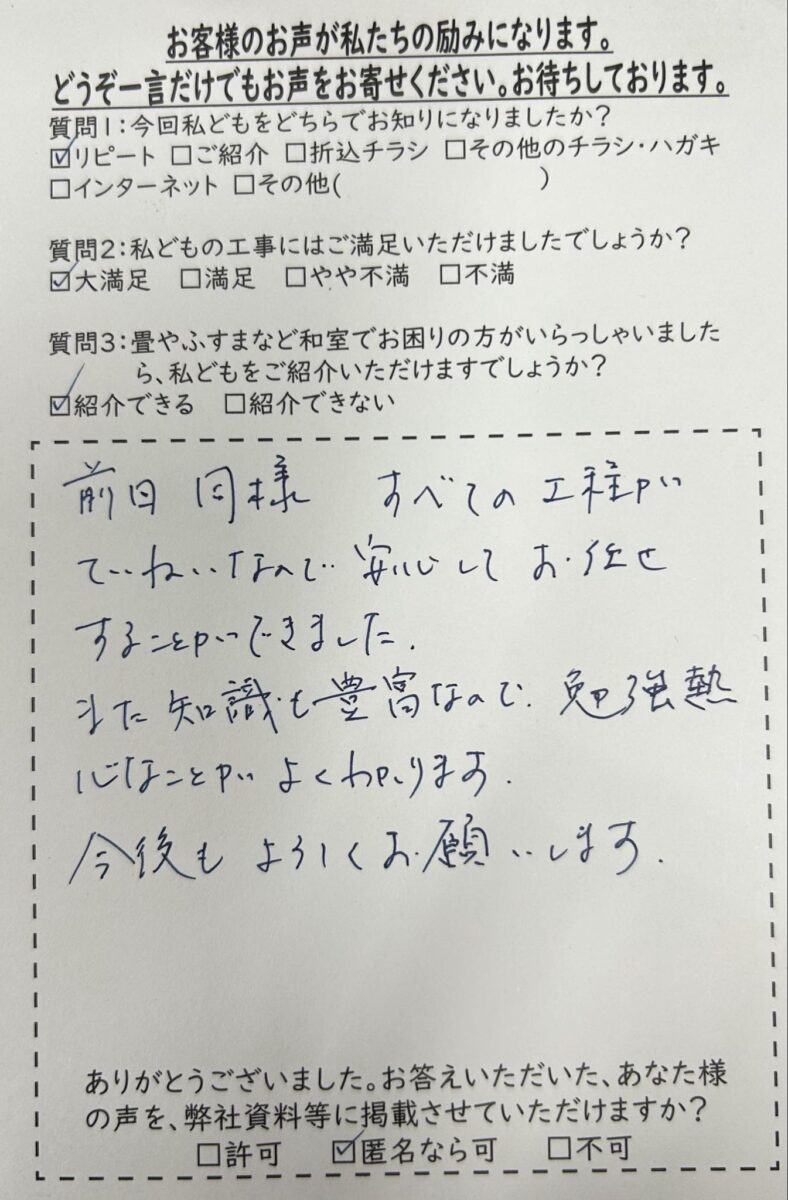 お客様のお声が私たちの励みになります。
どうぞ一言だけでもお声をお寄せください。お待ちしております。
質問1:今回私どもをどちらでお知りになりましたか?
☑リピート □ご紹介 □折込チラシ □その他のチラシ・ハガキ
□インターネット □その他( )
質問2:私どもの工事にはご満足いただけましたでしょうか?
☑大満足 □満足 □やや不満 □不満
質問3:畳やふすまなど和室でお困りの方がいらっしゃいました
ら、私どもをご紹介いただけますでしょうか?
☑紹介できる □紹介できない
前回同様 すべての工程が
ていねいなので 安心して お任せ
することができました.
また知識も豊富なので、勉強熱
心なことが よくわかります.
今後も よろしくお願いします.
ありがとうございました。お答えいただいた、あなた様
の声を、弊社資料等に掲載させていただけますか?
□許可 ☑匿名なら可 □不可